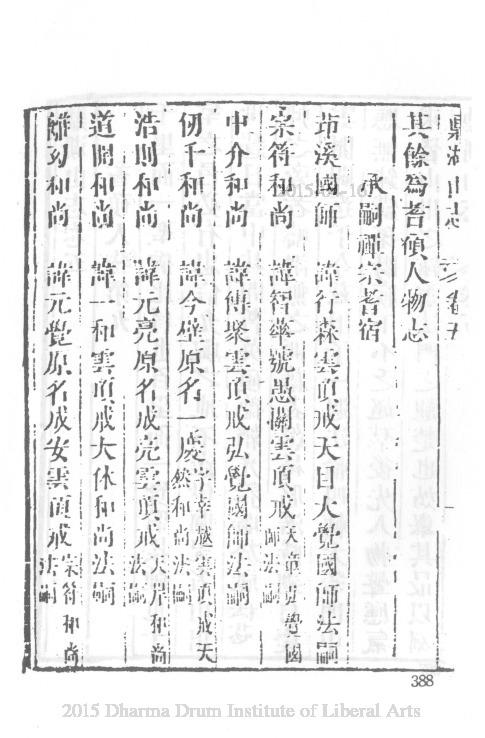 鼎湖山志 卷五
其餘為耆碩人物志
承嗣禪宗耆宿
茆溪國師 諱行森雲頂戒天目大覺國師法嗣
宗符和尚 諱智華號愚關雲頂戒天童弘覺國師法嗣
中介和尚 諱傳眾雲頂戒弘覺國師法嗣
仞千和尚 諱今壁原名一處字幸越雲頂戒天然和尚法嗣
浩則和尚 諱元亮原名成亮雲頂戒天岸和尚法嗣
道閒和尚 諱一和雲頂戒大休和尚法嗣
離幻和尚 諱元覺原名成安雲頂戒宗符和尚法嗣
388
2015 Dharma Drum Institute of Liberal Arts